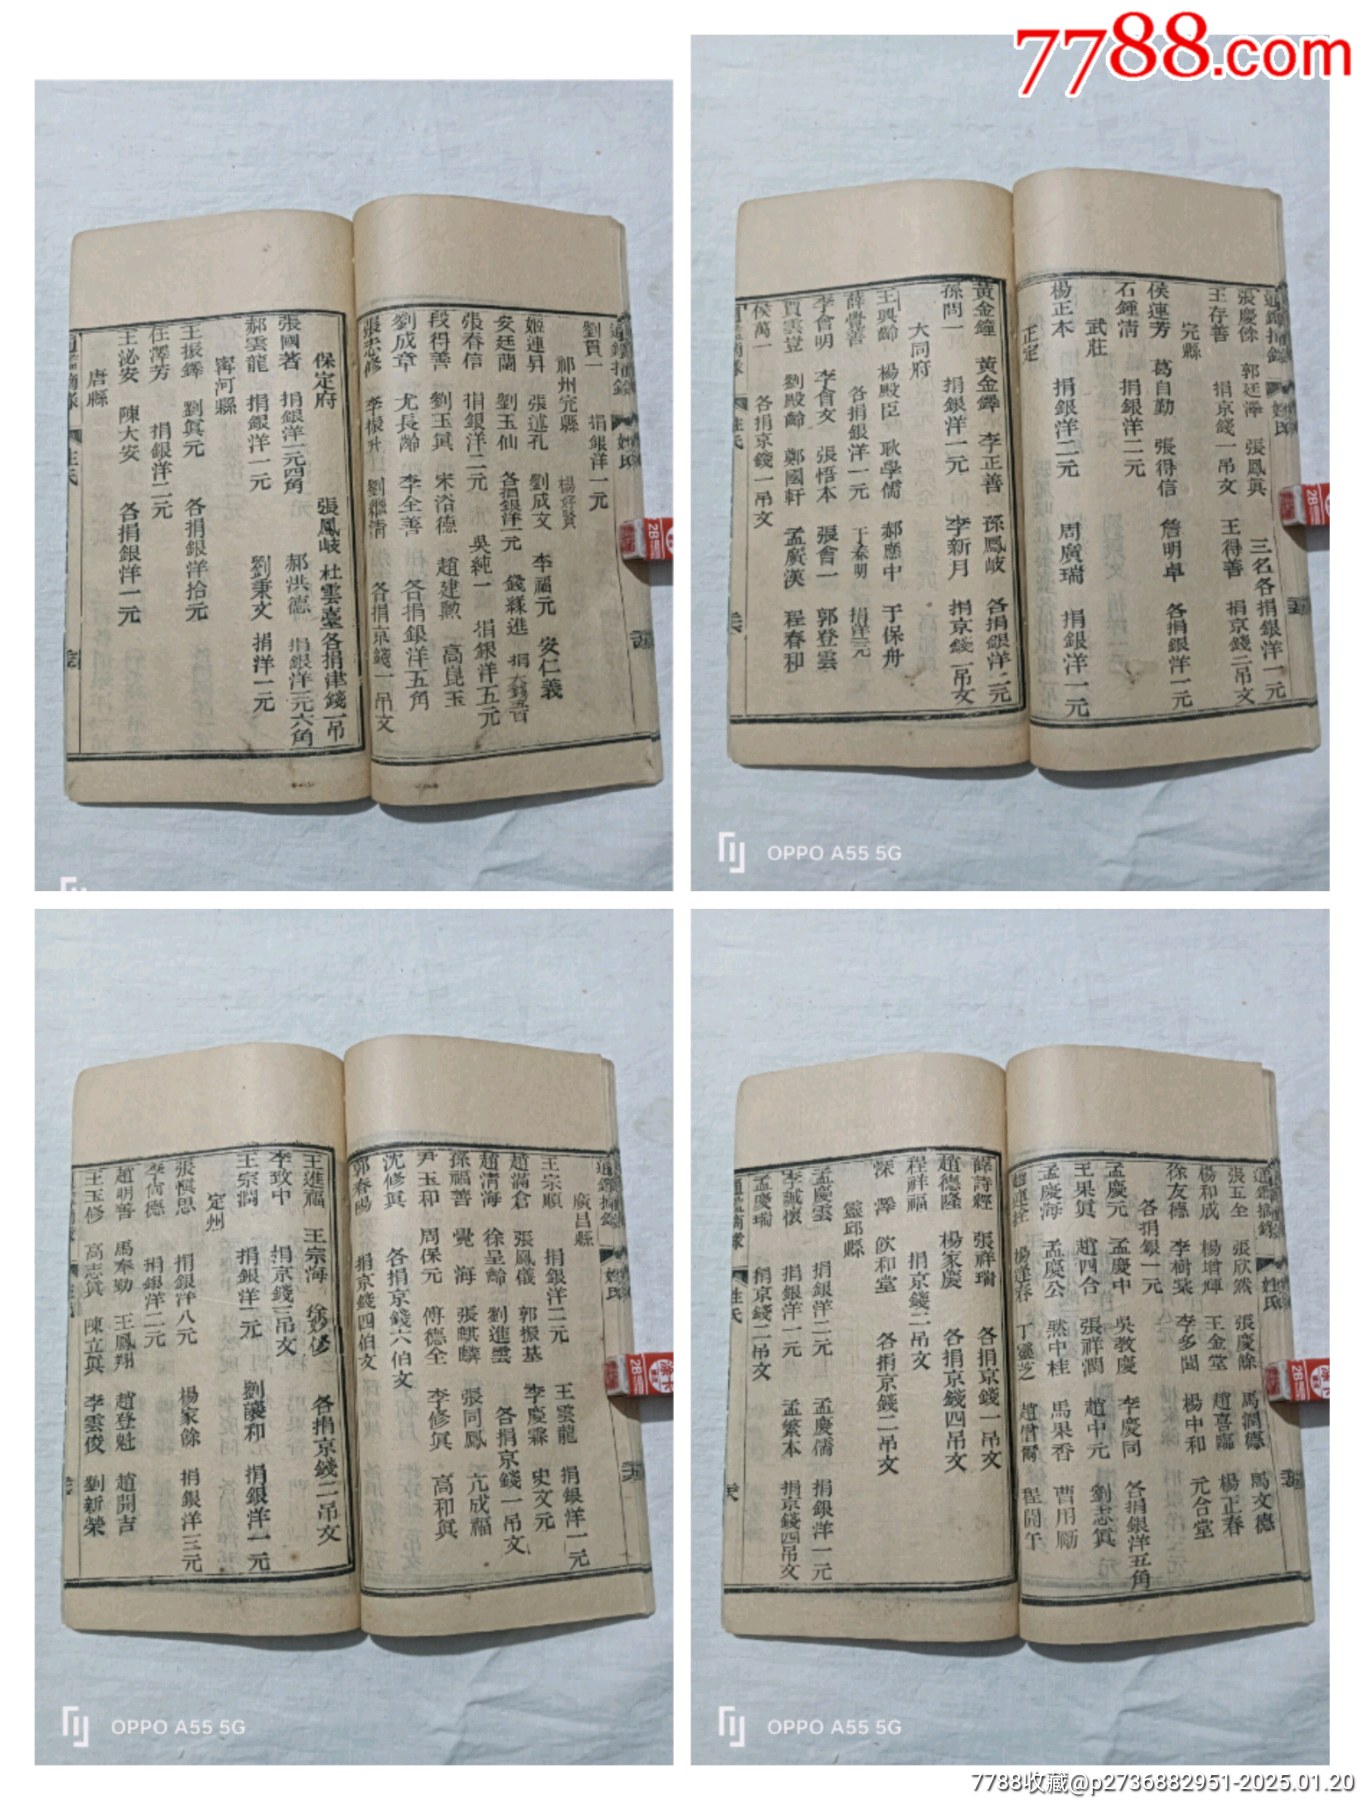 7788.com
劉貫一 捐銀洋一元
祁州完縣 楊好賢
姬連昇 張述孔 劉成文 李福元 安仁義
安廷蘭 劉玉仙 各捐銀洋一元
張春信 捐銀洋二元 吳純一 捐銀洋五元
段得善 劉玉真 宋浴德 趙建勲 王高崑玉
劉成章 尤長齡 李全善 各捐銀洋五角
張忠修 李振升 劉繼清 各捐京錢一吊文
保定府 張鳳岐 杜雲臺 各捐津錢一吊
張國著 捐銀洋一元四角 郝洪德 捐銀洋三元六角
郝雲龍 捐銀洋一元 劉秉文 捐洋一元
寗河縣
王振鐸 劉真元 各捐銀洋拾元
任澤芳 捐銀洋二元
王泌安 陳大安 各捐銀洋一元
唐縣
通鑑摘錄 姓氏
張慶餘 郭廷澤 張鳳真 三名各捐銀洋一元
王存善 捐京錢一吊文 王得善 捐京錢二吊文
完縣
侯蓮芳 葛自勤 張得信 詹明卓 各捐銀洋一元
石鍾清 捐銀洋二元
武莊
楊正本 捐銀洋二元 周廣瑞 捐銀洋一元
正定
黃金鐘 黃金鐸 李正善 孫鳳岐 各捐銀洋二元
孫問一 捐銀洋一元 李新月 捐京錢一吊文
大同府
王興齡 楊殿臣 耿學儒 郝應中 于保舟
薛豊善 各捐銀洋一元 于泰明 捐洋元
李會明 李自文 張悟本 張會一 郭登雲
賈雲登 劉殿齡 鄭國軒 孟廣漢 程春和
侯萬一 各捐京錢一吊文
OPPO A55 5G
廣昌縣
王宗順 捐銀洋二元 王雲龍 捐銀洋一元
趙滿倉 張鳳儀 郭振基 李慶霖 史文元
趙清海 徐呈齡 劉進雲 各捐京錢一吊文
孫福善 覺海 張麒麟 張同鳳 亢成福
尹玉和 周保元 傅德全 李修真 高和真
沈修真 各捐京錢六伯文
郭春陽 捐京錢四伯文
王進福 王宗海 徐妙修 各捐京錢二吊文
李致中 捐京錢三吊文
王宗潤 捐銀洋二元 劉護和 捐銀洋一元
定州
張慎思 捐銀洋八元 楊家餘 捐銀洋三元
李尚德 捐銀洋二元
趙明善 馬奉勤 王鳳翔 趙登魁 趙開吉
王玉修 高志真 陳立真 李雲俊 劉新榮
OPPO A55 5G
通鑑摘錄 姓氏
張玉全 張欣然 張慶餘 馬潤德 馬文德
楊和成 楊增輝 王金堂 趙喜臨 楊正春
徐友德 李樹棠 李多閭 楊中和 元合堂
各捐銀一元
孟慶元 孟慶中 吳教慶 李慶同 各捐銀洋五角
王果真 趙四合 張祥潤 趙中元 劉志真
孟慶海 孟慶公 然中桂 馬果香 曹用勵
趙連控 楊逢春 丁靈芝 趙僧爾 程開午
薛詩經 張祥瑞 各捐京錢一吊文
趙德隆 楊家慶 各捐京錢四吊文
程祥福 捐京錢二吊文
深澤 飲和堂 各捐京錢二吊文
靈邱縣
孟慶雲 捐銀洋二元 孟慶儒 捐銀洋一元
李誠懷 捐銀洋一元 孟繁本 捐京錢四吊文
孟慶瑞 捐京錢二吊文
OPPO A55 5G
7788收藏@p2736882951-2025.01.20